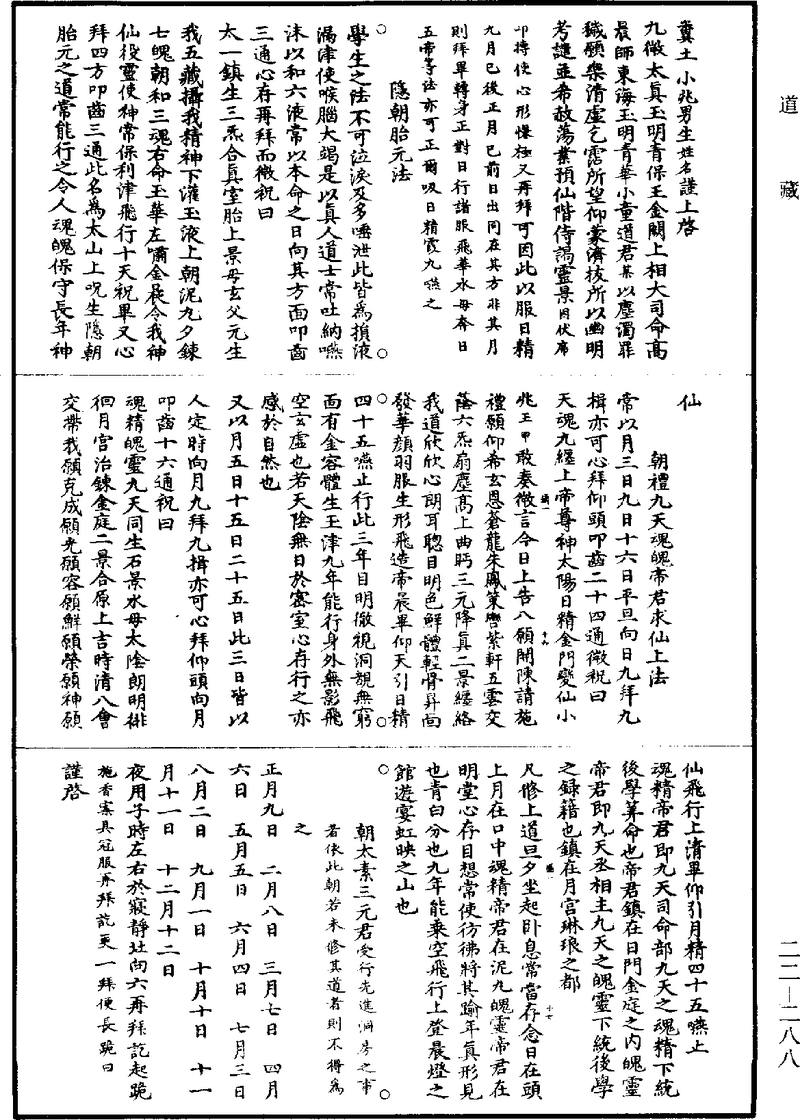 道藏
糞土小兆男生姓名謹上啓
九微太真玉明青保王金闕上相大司命高
晨師東海玉明青華小童道君某以塵濁罪
穢願樂清虛乞霑所望仰蒙濟拔所以幽明
考讁並希赦蕩業預仙階侍謁靈景因伏席
叩搏使心形慊極又再拜可因此以服日精
九月已後正月已前日出同在其方非其月
則拜畢轉身正對日行諸服飛華水母奔日
五帝等法亦可正爾吸日精霞九嚥之
隱朝胎元法
學生之法不可泣淚及多唾泄此皆為損液
漏津使喉腦大竭是以真人道士常吐納嚥
沐以和六液常以本命之日向其方面叩齒
三通心存再拜而微祝曰
太一鎮生三炁合真室胎上景母玄父元生
我五藏攝我精神下灌玉液上朝泥九夕鍊
七魄朝和三魂右命玉華左嘯金晨令我神
仙役靈使神常保利津飛行十天祝畢又心
拜四方叩齒三通此名為太山上呪生隱朝
胎元之道常能行之令人魂魄保守長年神
仙
朝禮九天魂魄帝君求仙上法
常以月三日九日十六日平旦向日九拜九
揖亦可心拜仰頭叩齒二十四通微祝曰
天魂九纏上帝尊神太陽日精金門變仙小
兆王甲敢奏微言今日上告八願開陳請施
禮願仰希玄恩蒼龍朱鳳策轡紫軒五雲交
蔭六炁扇塵高上曲眄三元降真二景纏絡
我道欣欣心朗耳聰目明色鮮體輕骨昇面
發華顏羽服生形飛造帝晨畢仰天引日精
四十五嚥止行此三年目明徹視洞覩無窮
面有金容體生玉津九年能行身外無影飛
空玄虛也若天陰無日於密室心存行之亦
感於自然也
又以月五日十五日二十五日此三日皆以
人定時向月九拜九揖亦可心拜仰頭向月
叩齒十六通祝曰
魂精魄靈九天同生石景水母太陰朗明徘
徊月宮治鍊金庭二景合原上吉時清八會
交帶我願克成願光願容願鮮願榮願神願
仙飛行上清畢仰引月精四十五嚥止
魂精帝君即九天司命部九天之魂精下統
後學筭命也帝君鎮在日門金庭之内魄靈
帝君即九天丞相主九天之魄靈下統後學
之録籍也鎮在月宮琳琅之都
凡修上道旦夕坐起卧息常當存念日在頭
上月在口中魂精帝君在泥九魄靈帝君在
明堂心存目想常使彷彿將其踰年真形見
也青白分也九年能乘空飛行上登晨燈之
館遊宴虹映之山也
朝太素三元君受行先進洞房之事
若依此朝若未修其道者則不得為
之
正月九日　二月八日　三月七日　四月
六日　五月五日　六月四日　七月三日
八月二日　九月一日　十月十日　十一
月十一日　十二月十二日
夜用子時左右於寢静處向六再拜訖起跪
施香案具冠服再拜訖更一拜便長跪曰
謹啓
二二—二八八